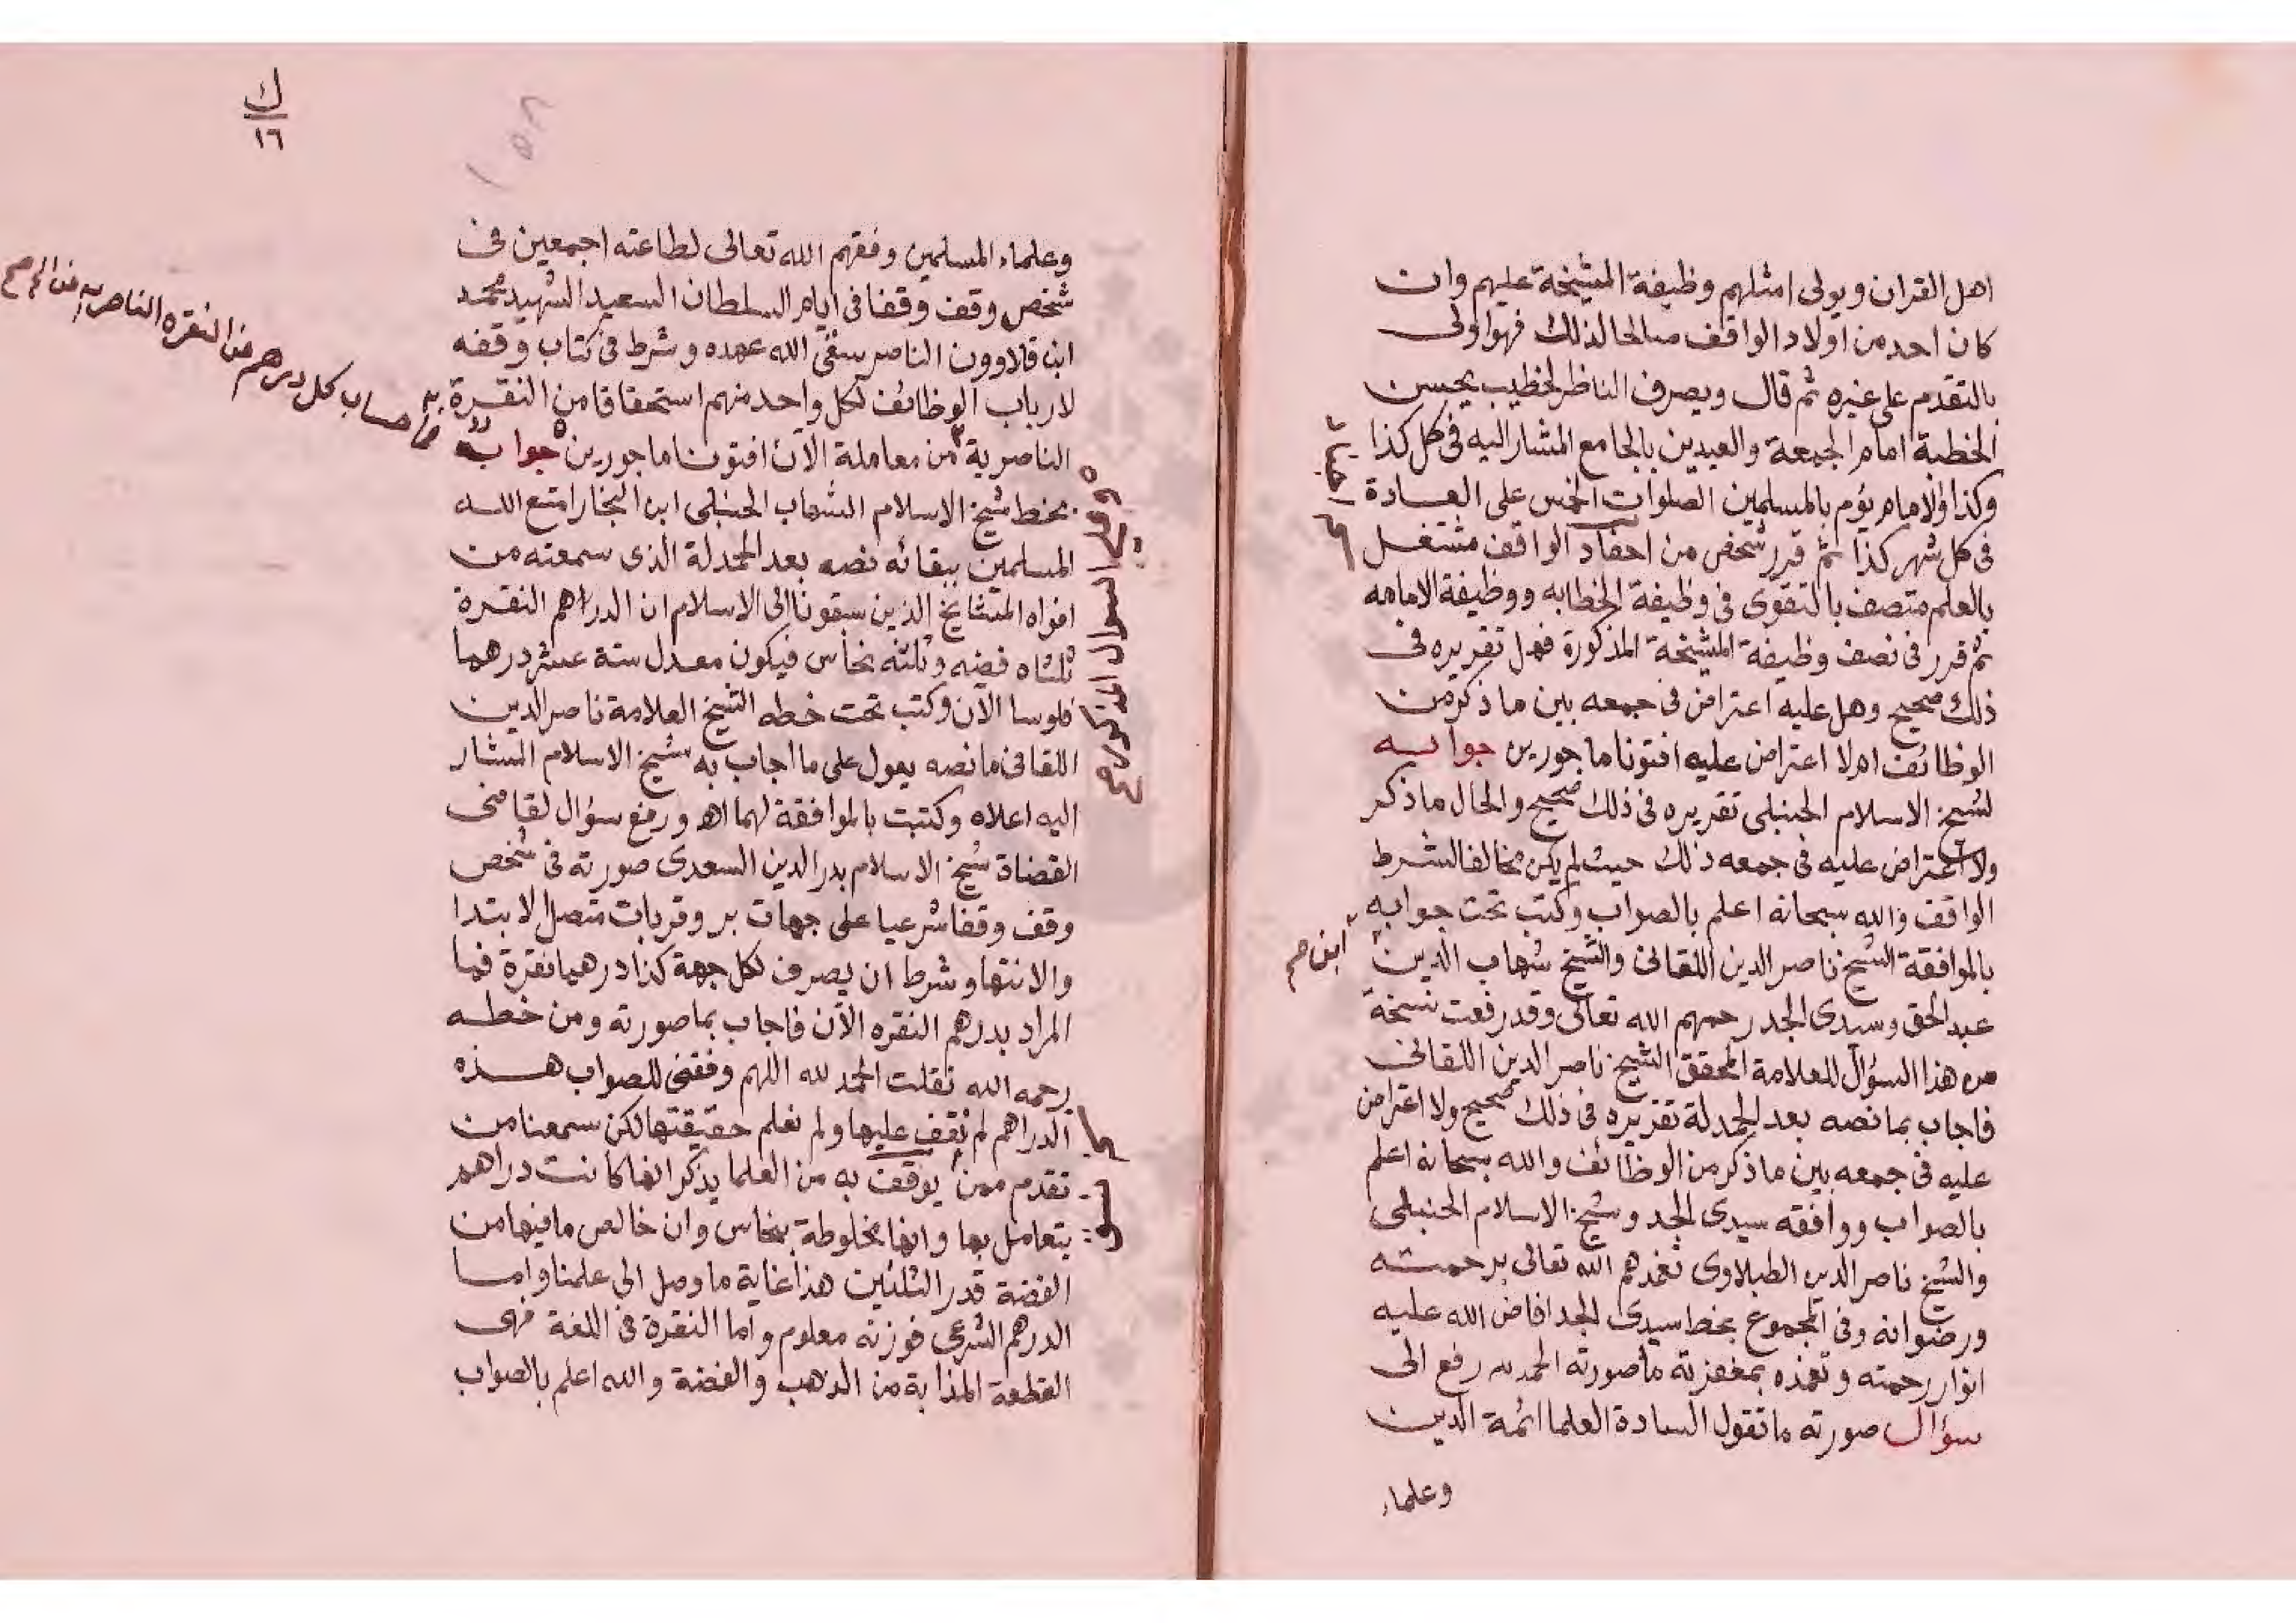 اهل القران ويولى امثلهم وظيفة المشيخة عليهم وان
كان احد من اولاد الواقف صالحا لذلك فهو اولى
بالتقدم على غيره ثم قال ويصرف الناظر لخطيب يحسن
الخطبة امام الجمعة والعيدين بالجامع المشار اليه فى كل كذا
وكذا ولامام يؤم بالمسلمين الصلوات الخمس على العادة
فى كل شهر كذا ثم قرر شخص من احفاد الواقف مشتغل
بالعلم متصف بالتقوى فى وظيفة الخطابه ووظيفة الامامه
ثم قرر فى نصف وظيفة المشيخة المذكورة فهل تقريره فى
ذلك صحيح وهل عليه اعتراض فى جمعه بين ما ذكر من
الوظائف ام لا اعتراض عليه افتونا ماجورين جوابه
لشيخ الاسلام الحنبلى تقريره فى ذلك صحيح والحال ما ذكر
ولا اعتراض عليه فى جمعه ذلك حيث لم يكن مخالفا لشرط
الواقف والله سبحانه اعلم بالصواب وكتب تحت جوابه
بالموافقة الشيخ ناصر الدين اللقانى والشيخ شهاب الدين
ابن صح
عبد الحق وسيدى الجد رحمهم الله تعالى وقد رفعت نسخة
من هذا السؤال للعلامة المحقق الشيخ ناصر الدين اللقانى
فاجاب بما نصه بعد الحمدلة تقريره فى ذلك صحيح ولا اعتراض
عليه فى جمعه بين ما ذكر من الوظائف والله سبحانه اعلم
بالصواب ووافقه سيدى الجد وشيخ الاسلام الحنبلى
والشيخ ناصر الدين الطبلاوى تغمدهم الله تعالى برحمته
ورضوانه وفى المجموع بخط سيدى الجد افاض الله عليه
انوار رحمته وتغمده بمغفرته ما صورته الحمد لله رفع الى
سؤال صورته ما تقول السادة العلما ائمة الدين
وعلماء
ك
١٦
وعلماء المسلمين وفقهم الله تعالى لطاعته اجمعين فى
شخص وقف وقفا فى ايام السلطان السعيد الشهيد محمد
ابن قلاوون الناصر سقى الله عهده وشرط فى كتاب وقفه
لارباب الوظائف لكل واحد منهم استحقاقا من النقرة
حساب كل درهم من النقره الناصريه
الناصرية من معاملة الآن افتونا ماجورين جوابه
بخط شيخ الاسلام الشهاب الحنبلى ابن النجار امتع الله
المسلمين ببقائه نصه بعد الحمدلة الذى سمعته من
افواه المشايخ الذين سبقونا الى الاسلام ان الدراهم النقرة
ثلثاه فضه وثلثه نحاس فيكون معدل ستة عشر درهما
فلوسا الآن وكتب تحت خطه الشيخ العلامة ناصر الدين
اللقانى ما نصه يعول على ما اجاب به شيخ الاسلام المشار
اليه اعلاه وكتبت بالموافقة لهما اه ورفع سؤال لقاضى
القضاة شيخ الاسلام بدر الدين السعدى صورته فى شخص
وقف وقفا شرعيا على جهات بر وقربات متصل الابتدا
والانتها وشرط ان يصرف لكل جهة كذا درهما نقرة فما
المراد بدرهم النقره الآن فاجاب بما صورته ومن خطه
رحمه الله نقلت الحمد لله اللهم وفقنى للصواب هذه
الدراهم لم نقف عليها ولم نعلم حقيقتها لكن سمعنا من
تقدم ممن يوقف به من العلما يذكر انها كانت دراهم
يتعامل بها وانها مخلوطة بنحاس وان خالص ما فيها من
الفضة قدر الثلثين هذا غاية ما وصل الى علمنا واما
الدرهم الشرعى فوزنه معلوم واما النقرة فى اللغة فهى
القطعة المذابة من الذهب والفضة والله اعلم بالصواب